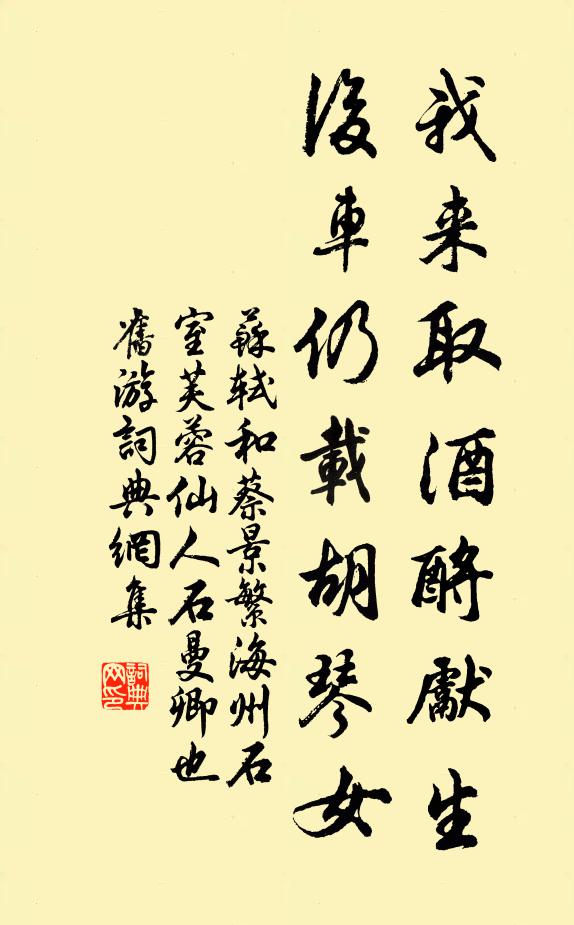 我来取酒酹獻生
後車仍載胡琴女
蘇軾和蔡景繁海州石
室芙蓉仙人石曼卿也
舊游詞典網集
詞典
网印